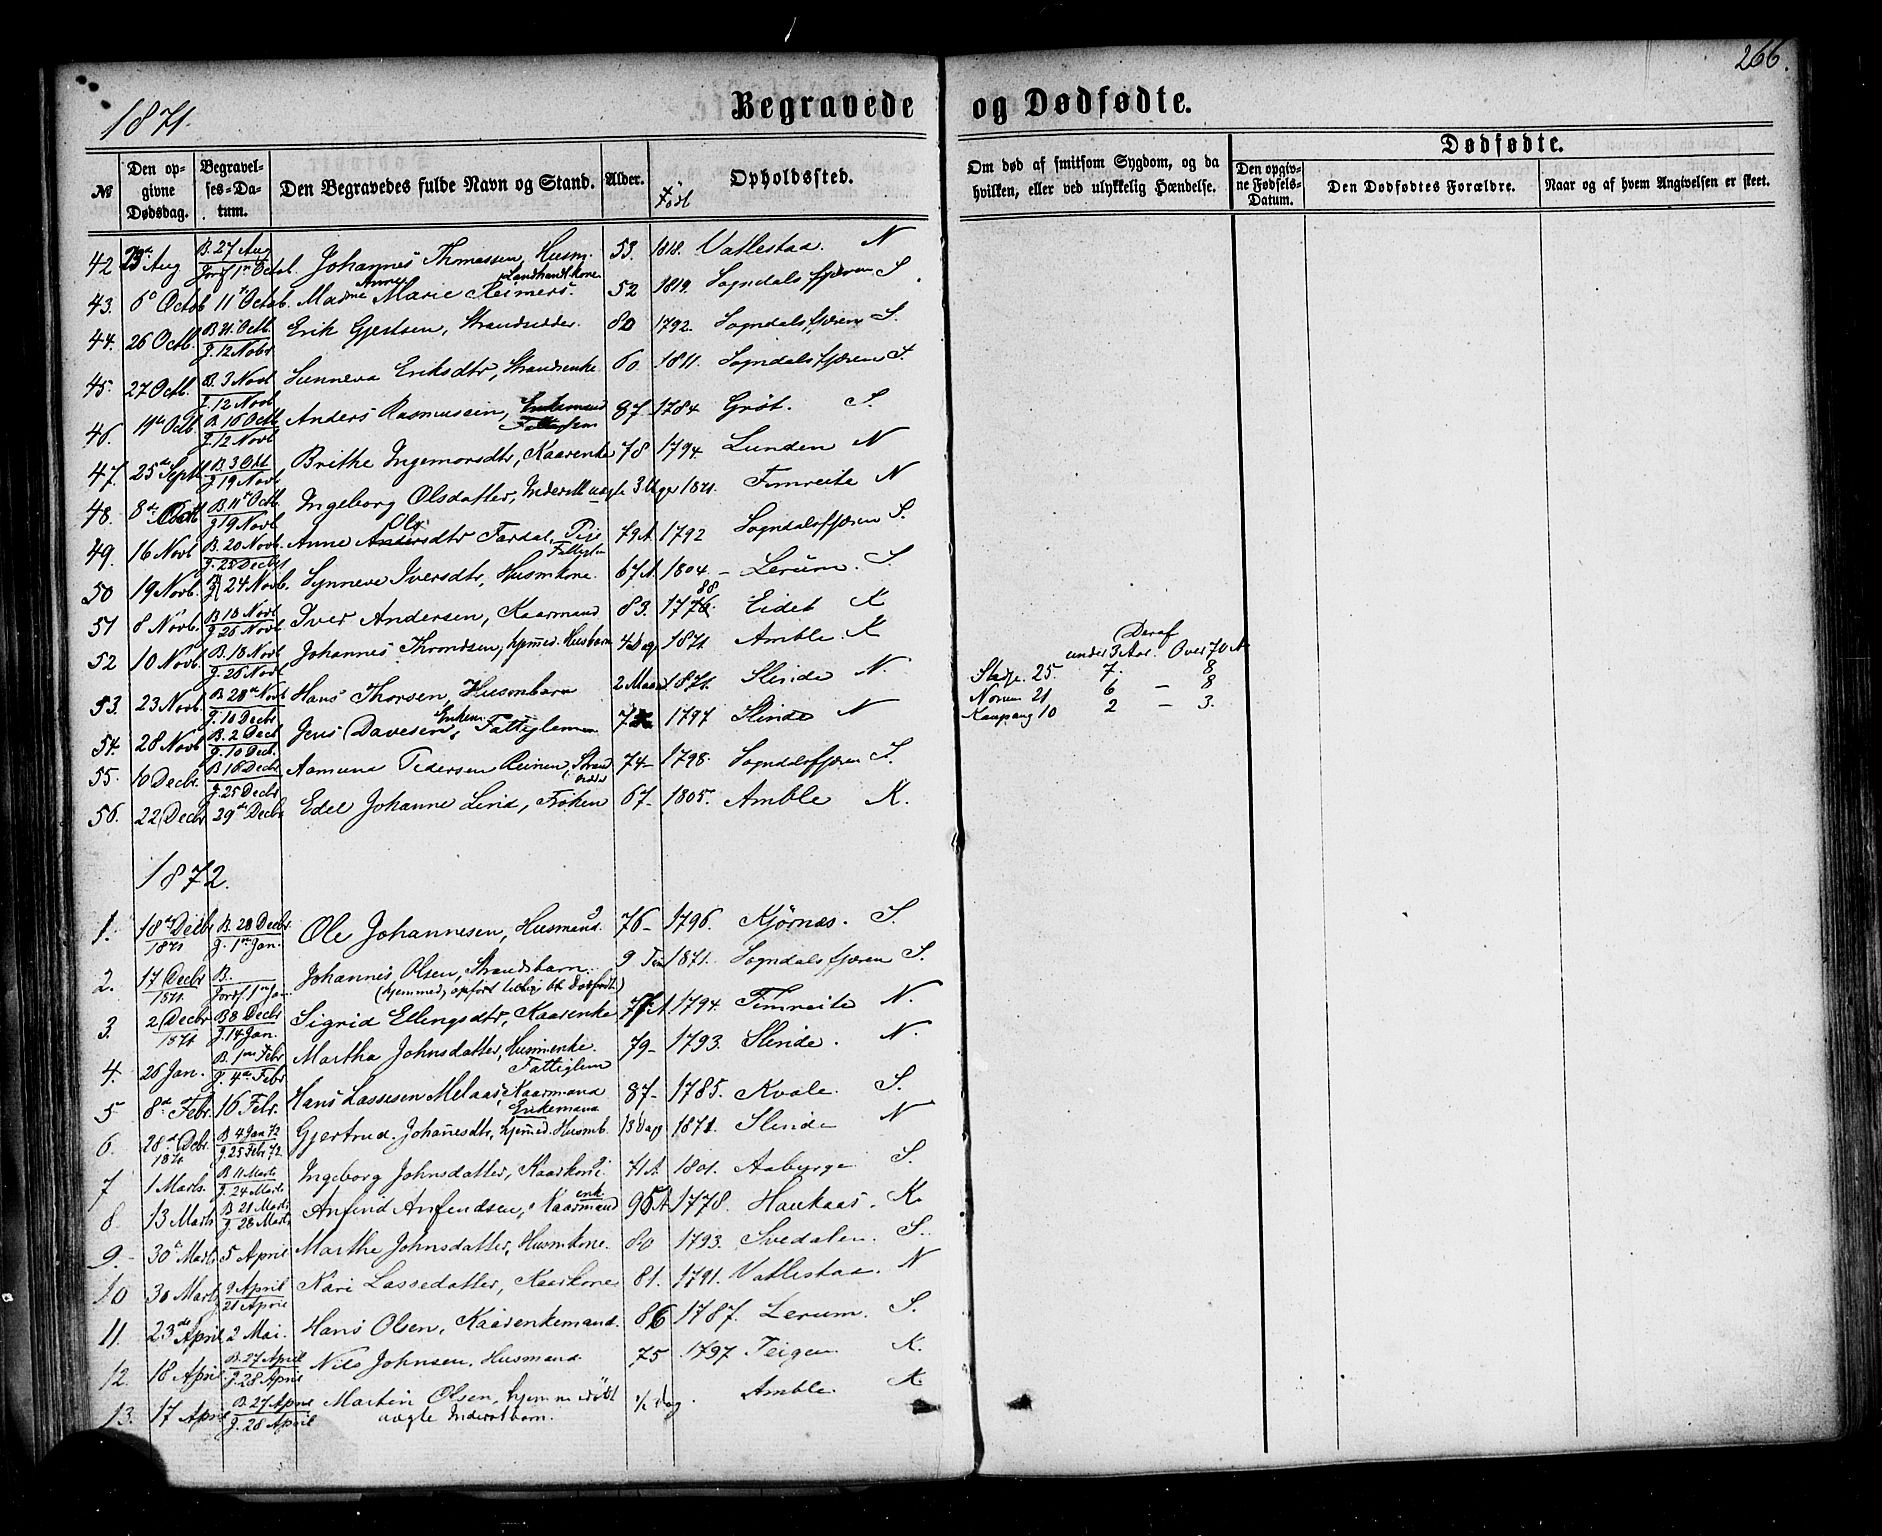 266.
1871.
Begravede og Dødfødte.
№
Den opgivne Dødsdag.
Begravelses-Datum.
Den Begravedes fulde Navn og Stand.
Alder.
Født
Opholdssted.
Om død af smitsom Sygdom, og da hvilken, eller ved ulykkelig Hændelse.
Dødfødte.
Den opgivne Fødsels-Datum.
Den Dødfødtes Forældre.
Naar og af hvem Angivelsen er skeet.
42 Aug B. 27 Aug Jordf 1ste Octob. Johannes Thomassen, Husm. 53. 1818. Vatlestaa. N
43. 6 Octob 11te Octob. Madme Anne Marie Reimers. Landhandl.kone 52 1819. Sogndalsfjæren S.
44. 26 Octb. B. 31 Octb. J. 12 Nobr Erik Gjertsen, Strandsidder. 80 1792. Sogndalsfjæren S.
45. 27 Octb. B. 3 Novb J. 12 Novb Sunneva Eriksdtr, Strandenke. 60 1811. Sogndalsfjæren S.
46. Octb B. 16 Octb J. 12 Novb Anders Rasmussen, Enkemand Fattiglem 87. 1784 Grøt. S.
47. 25de Septb B. 3 Okt J. 19 Novb Brithe Ingemorsdtr, Kaarenke 78 1794. Lunden N
48. 8de Octb B. 11te Octb J. 19 Novb Ingeborg Olsdatter, Inderst. uægte 3 Uger 1871. Fimreite N
49. 16 Novb B. 20 Novb. J. 25 Decbr Anne Andersdtr Ols Fardal, Pige Fattiglem 79 A. 1792 Sogndalsfjæren S.
50 19 Novb. 24 Novb. Synneve Iversdtr, Husmkone. 67 A. 1804. – Lerum. S.
51 8 Novb. B 18 Novb J. 26 Novb Iver Andersen, Kaarmand 83. 1776. 88 Eidet K
52 10 Novb. B. 18 Novb J. 26 Novb. Johannes Throndsen, hjemmed. Husbarn 4 Dag 1871 Amble. K
53. 23 Novb. B. 28de Novb J. 10 Decbr Hans Thorsen, Husmbarn 2 Maan. 1871. Slinde N.
54. 28 Novb B. 2 Decb J. 10 Decb. Jens Davesen, Enkem. Fattiglem 1797 Slinde N
55. 10 Decbr. B. 16 Decbr J. 25 Decbr Aamund Pedersen Reinen, Strandsidder 74– 1798. Sogndalsfjæren S.
56. 22 Decbr 29de Decbr Edel Johanne Lind, Frøken 67– 1805. Amble K.
Deraf
under 3 Aar. Over 70 A
Stedje. 25. 7. 8
Norum 21 6 – 8
Kaupang 10 2 – 3.
1872.
1. 18de Decbr 1871 B. 28 Decbr. J. 1ste Jan. Ole Johannesen, Husmand. 76– 1796. Kjørnæs. S.
2. 17 Decbr 1871. B. Jordf 1ste Jan. Johannes Olsen, Strandsbarn. 9 Tim 1871. Sogndalsfjæren S.
(hjemmed, opført tidlig. bl. Dødfødt.)
3. 2 Decbr 1871 B 8 Decbr J. 14 Jan. Sigrid Ellingsdtr, Kaarenke 77 A 1794. Fimreite N.
4. 26 Jan. B. 1ste Febr J. 4de Febr Martha Johnsdatter, Husmenke. Fattiglem 79– 1793. Slinde. N.
5 8de Febr. 16 Febr. Hans Lassesen Melaas Kaarmand Enkemand 87– 1785. Kvale. S.
6. 28de Decbr. 1871. B 4 Jan 72 J. 25 Febr 72. Gjertrud. Johannesdtr, hjemmed. Husmb. 13 Dage 1871. Slinde N
7 1 Marts. B 11 Marts J. 24 Marts Ingeborg Johnsdatter, Kaarkone. 71 A. 1801. Aaberge S.
8. 13 Marts B 21 Marts J. 28 Marts Anfind Anfindsen, Kaarmand enk. 95 A 1778. Haukaas. K.
9. 30te Marts 5 April Marthe Johnsdatter, Husmkone. 80 1793. Svedalen. S.
10 30 Marts 9 April 21 April Kari Lassedatter, Kaarkone 81. 1791. Vatlestaa. N
11. 23de April 2 Mai. Hans Olsen, Kaarenkemand. 86 1787. Lerum. S.
12. 18 April B. 27 April J. 28 April Nils Johnsen, Husmand. 75 1797 Teigen K.
13. 17 April B. 27 April J. 28 April Martin Olsen, hjemmedøbt ½ Dag. Amble. K.
uægte Inderstbarn.